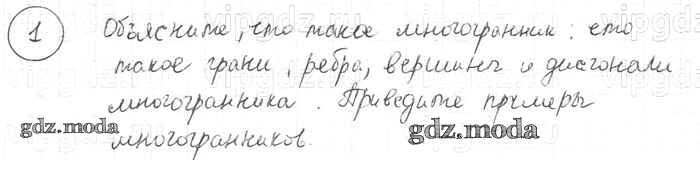 1 Объясните, что такое многогранник: что
такое грани, ребра, вершины и диагонали
многогранника. Приведите примеры
gdz.moda
многогранников.
gdz.moda